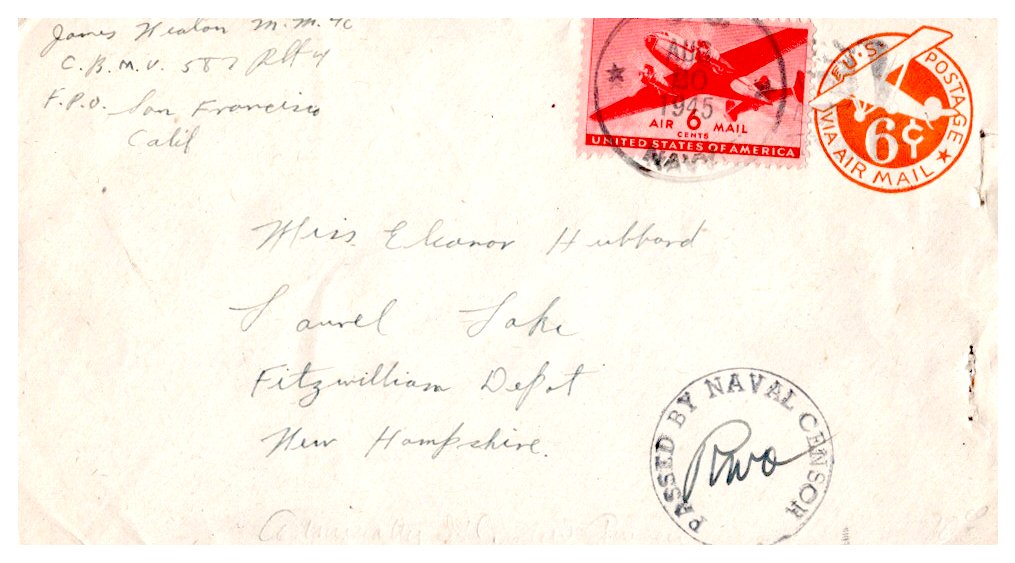 James Heaton M.M. 1/c
C.B.M.U. 587 Plt 4
F.P.O. San Francisco
Calif
AUG
20
1945
NAVY
AIR 6 MAIL
CENTS
UNITED STATES OF AMERICA
U.S. POSTAGE
6¢
VIA AIR MAIL
Miss. Eleanor Hubbard
Laurel Lake
Fitzwilliam Depot
New Hampshire.
PASSED BY NAVAL CENSOR
RWO